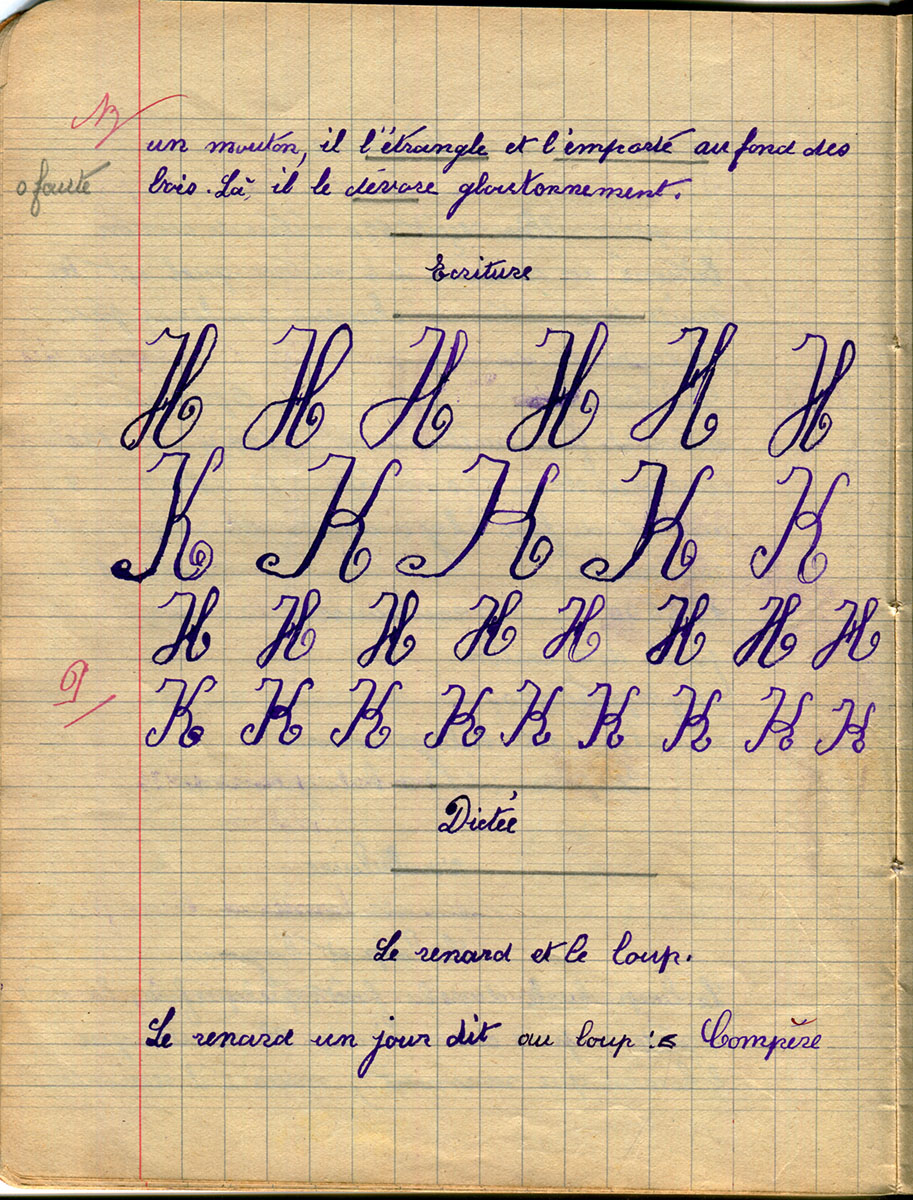 un mouton, il l'étrangle et l'emporte au fond des
0 faute
bois. Là, il le dévore gloutonnement.
Ecriture
H H H H H H
K K K K K
H H H H H H H H
K K K K K K K K K
Dictée
Le renard et le loup.
Le renard un jour dit au loup : Compère